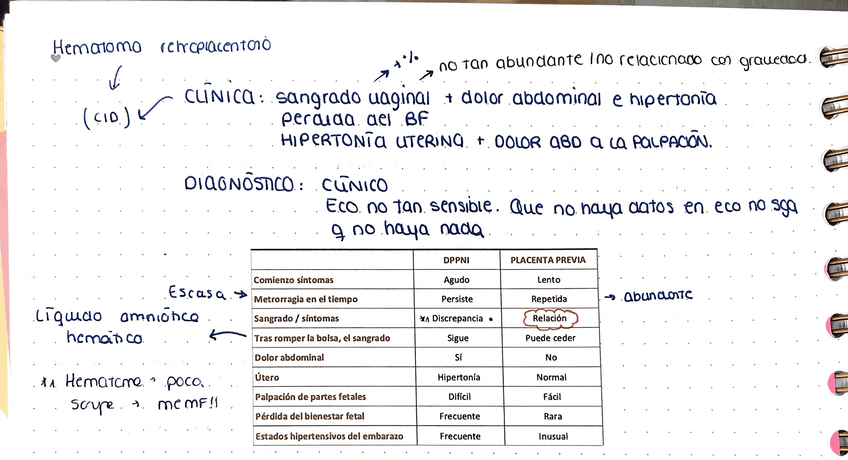 Hematoma retroplacentario
+%
no tan abundante / no relacionado con gravedad.
(CID)
CLÍNICA: sangrado vaginal + dolor abdominal e hipertonía
perdida del BF
HIPERTONÍA UTERINA + DOLOR ABD A LA PALPACIÓN.
DIAGNÓSTICO: CLÍNICO
Eco no tan sensible. Que no haya datos en eco no sga
q no haya nada
DPPNI PLACENTA PREVIA
Comienzo síntomas Agudo Lento
Escasa → Metrorragia en el tiempo Persiste Repetida → abundante
Sangrado / síntomas *1 Discrepancia • Relación
Líquido amniótico
hemático
Tras romper la bolsa, el sangrado Sigue Puede ceder
Dolor abdominal Sí No
Útero Hipertonía Normal
Palpación de partes fetales Difícil Fácil
Pérdida del bienestar fetal Frecuente Rara
Estados hipertensivos del embarazo Frecuente Inusual
*1 Hematoma → poca
→ memF!!